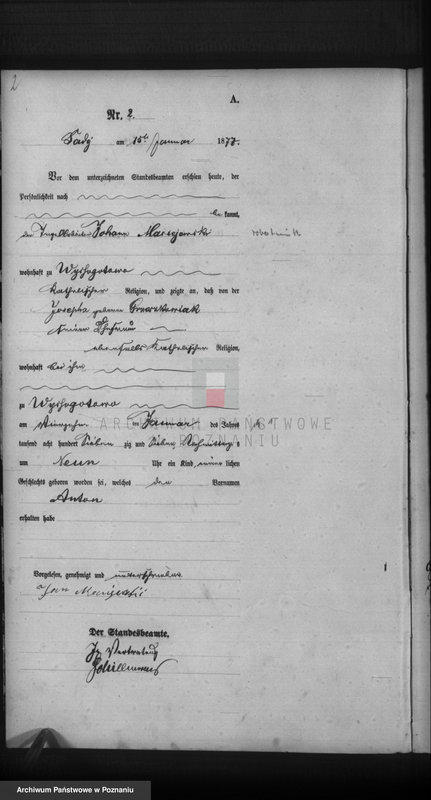 2
A.
Nr. 2.
Sady am 15ten Januar 1877.
Vor dem unterzeichneten Standesbeamten erschien heute, der
Persönlichkeit nach
be kannt,
der Johann robotnik
wohnhaft zu Wysogotowo
katholischer Religion, und zeigte an, daß von der
Josepha geborene
seiner Ehefrau
ebenfalls katholischer Religion,
wohnhaft bei ihm
zu Wysogotowo
am vierzehn ten Januar des Jahres
tausend acht hundert sieben zig und sieben, Nachmittags
um Neun Uhr ein Kind männ lichen
Geschlechts geboren worden sei, welches den Vornamen
Anton
erhalten habe
ARCHIWUM PAŃSTWOWE
W POZNANIU
Vorgelesen, genehmigt und unterschrieben
Jan
Der Standesbeamte.
In Vertretung
Archiwum Państwowe w Poznaniu